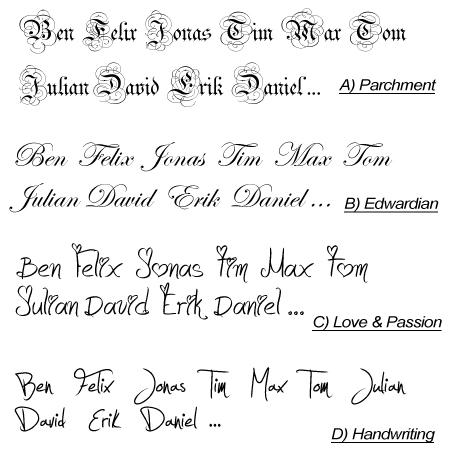 Ben Felix Jonas Tim Max Tom
Julian David Erik Daniel... A) Parchment
Ben Felix Jonas Tim Max Tom
Julian David Erik Daniel... B) Edwardian
Ben Felix Jonas Tim Max Tom
Julian David Erik Daniel... C) Love & Passion
Ben Felix Jonas Tim Max Tom Julian
David Erik Daniel... D) Handwriting